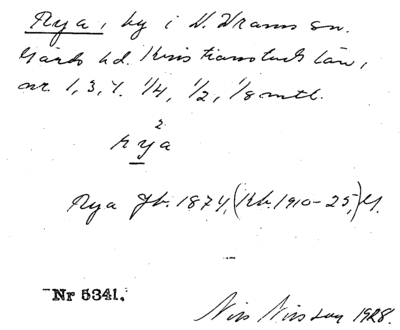 Rya, by i V. Vrams sn.
Gärds hd. Kristianstads län,
nr. 1, 3, 4. 1/4, 1/2, 1/8 mtl.
2
rya
Rya Jb. 1874, (Kb. 1910-25,)
Nr 5341.
Nils Nilsson 1928.